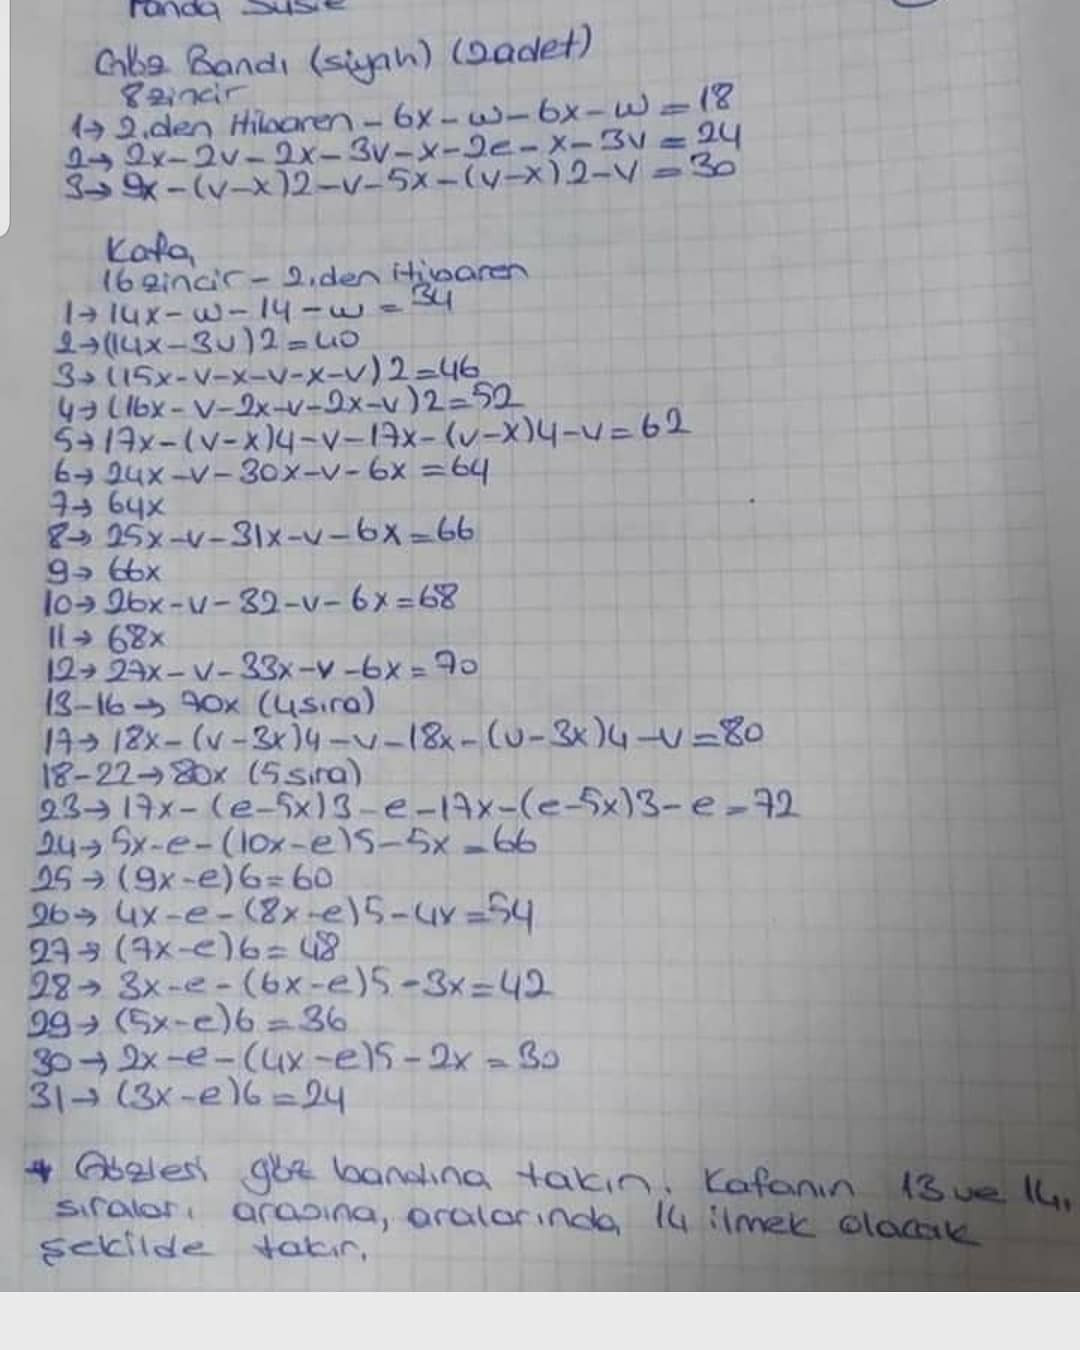 Panda Susie
Göz Bandı (siyah) (2adet)
8zincir
1→ 2.den itibaren - 6x - w - 6x - w = 18
2→ 2x-2v-2x-3v-x-2e-x-3v = 24
3→ 9x-(v-x)2-v-5x-(v-x)2-v = 30
Kafa
16zincir - 2.den itibaren
1→ 14x-w-14-w = 34
2→(14x-3v)2=40
3→(15x-v-x-v-x-v)2=46
4→(16x-v-2x-v-2x-v)2=52
5→17x-(v-x)4-v-17x-(v-x)4-v=62
6→ 24x-v-30x-v-6x=64
7→ 64x
8→ 25x-v-31x-v-6x=66
9→ 66x
10→ 26x-v-32-v-6x=68
11→ 68x
12→ 27x-v-33x-v-6x=70
13-16→ 70x (4sıra)
17→ 18x-(v-3x)4-v-18x-(v-3x)4-v=80
18-22→80x (5sıra)
23→17x-(e-5x)3-e-17x-(e-5x)3-e=72
24→5x-e-(10x-e)5-5x=66
25→(9x-e)6=60
26→ 4x-e-(8x-e)5-4x=54
27→(7x-e)6=48
28→ 3x-e-(6x-e)5-3x=42
29→(5x-e)6=36
30→2x-e-(4x-e)5-2x=30
31→(3x-e)6=24
* Gözleri göz bandına takın. Kafanın 13 ve 14.
sıraları arasına, aralarında 14 ilmek olacak
şekilde takın.